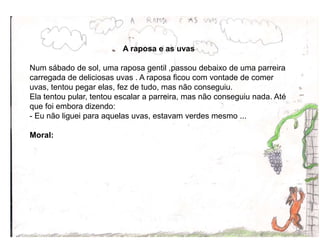 A RAPOSA E AS UVAS
A raposa e as uvas
Num sábado de sol, uma raposa gentil ,passou debaixo de uma parreira
carregada de deliciosas uvas . A raposa ficou com vontade de comer
uvas, tentou pegar elas, fez de tudo, mas não conseguiu.
Ela tentou pular, tentou escalar a parreira, mas não conseguiu nada. Até
que foi embora dizendo:
- Eu não liguei para aquelas uvas, estavam verdes mesmo ...
Moral: